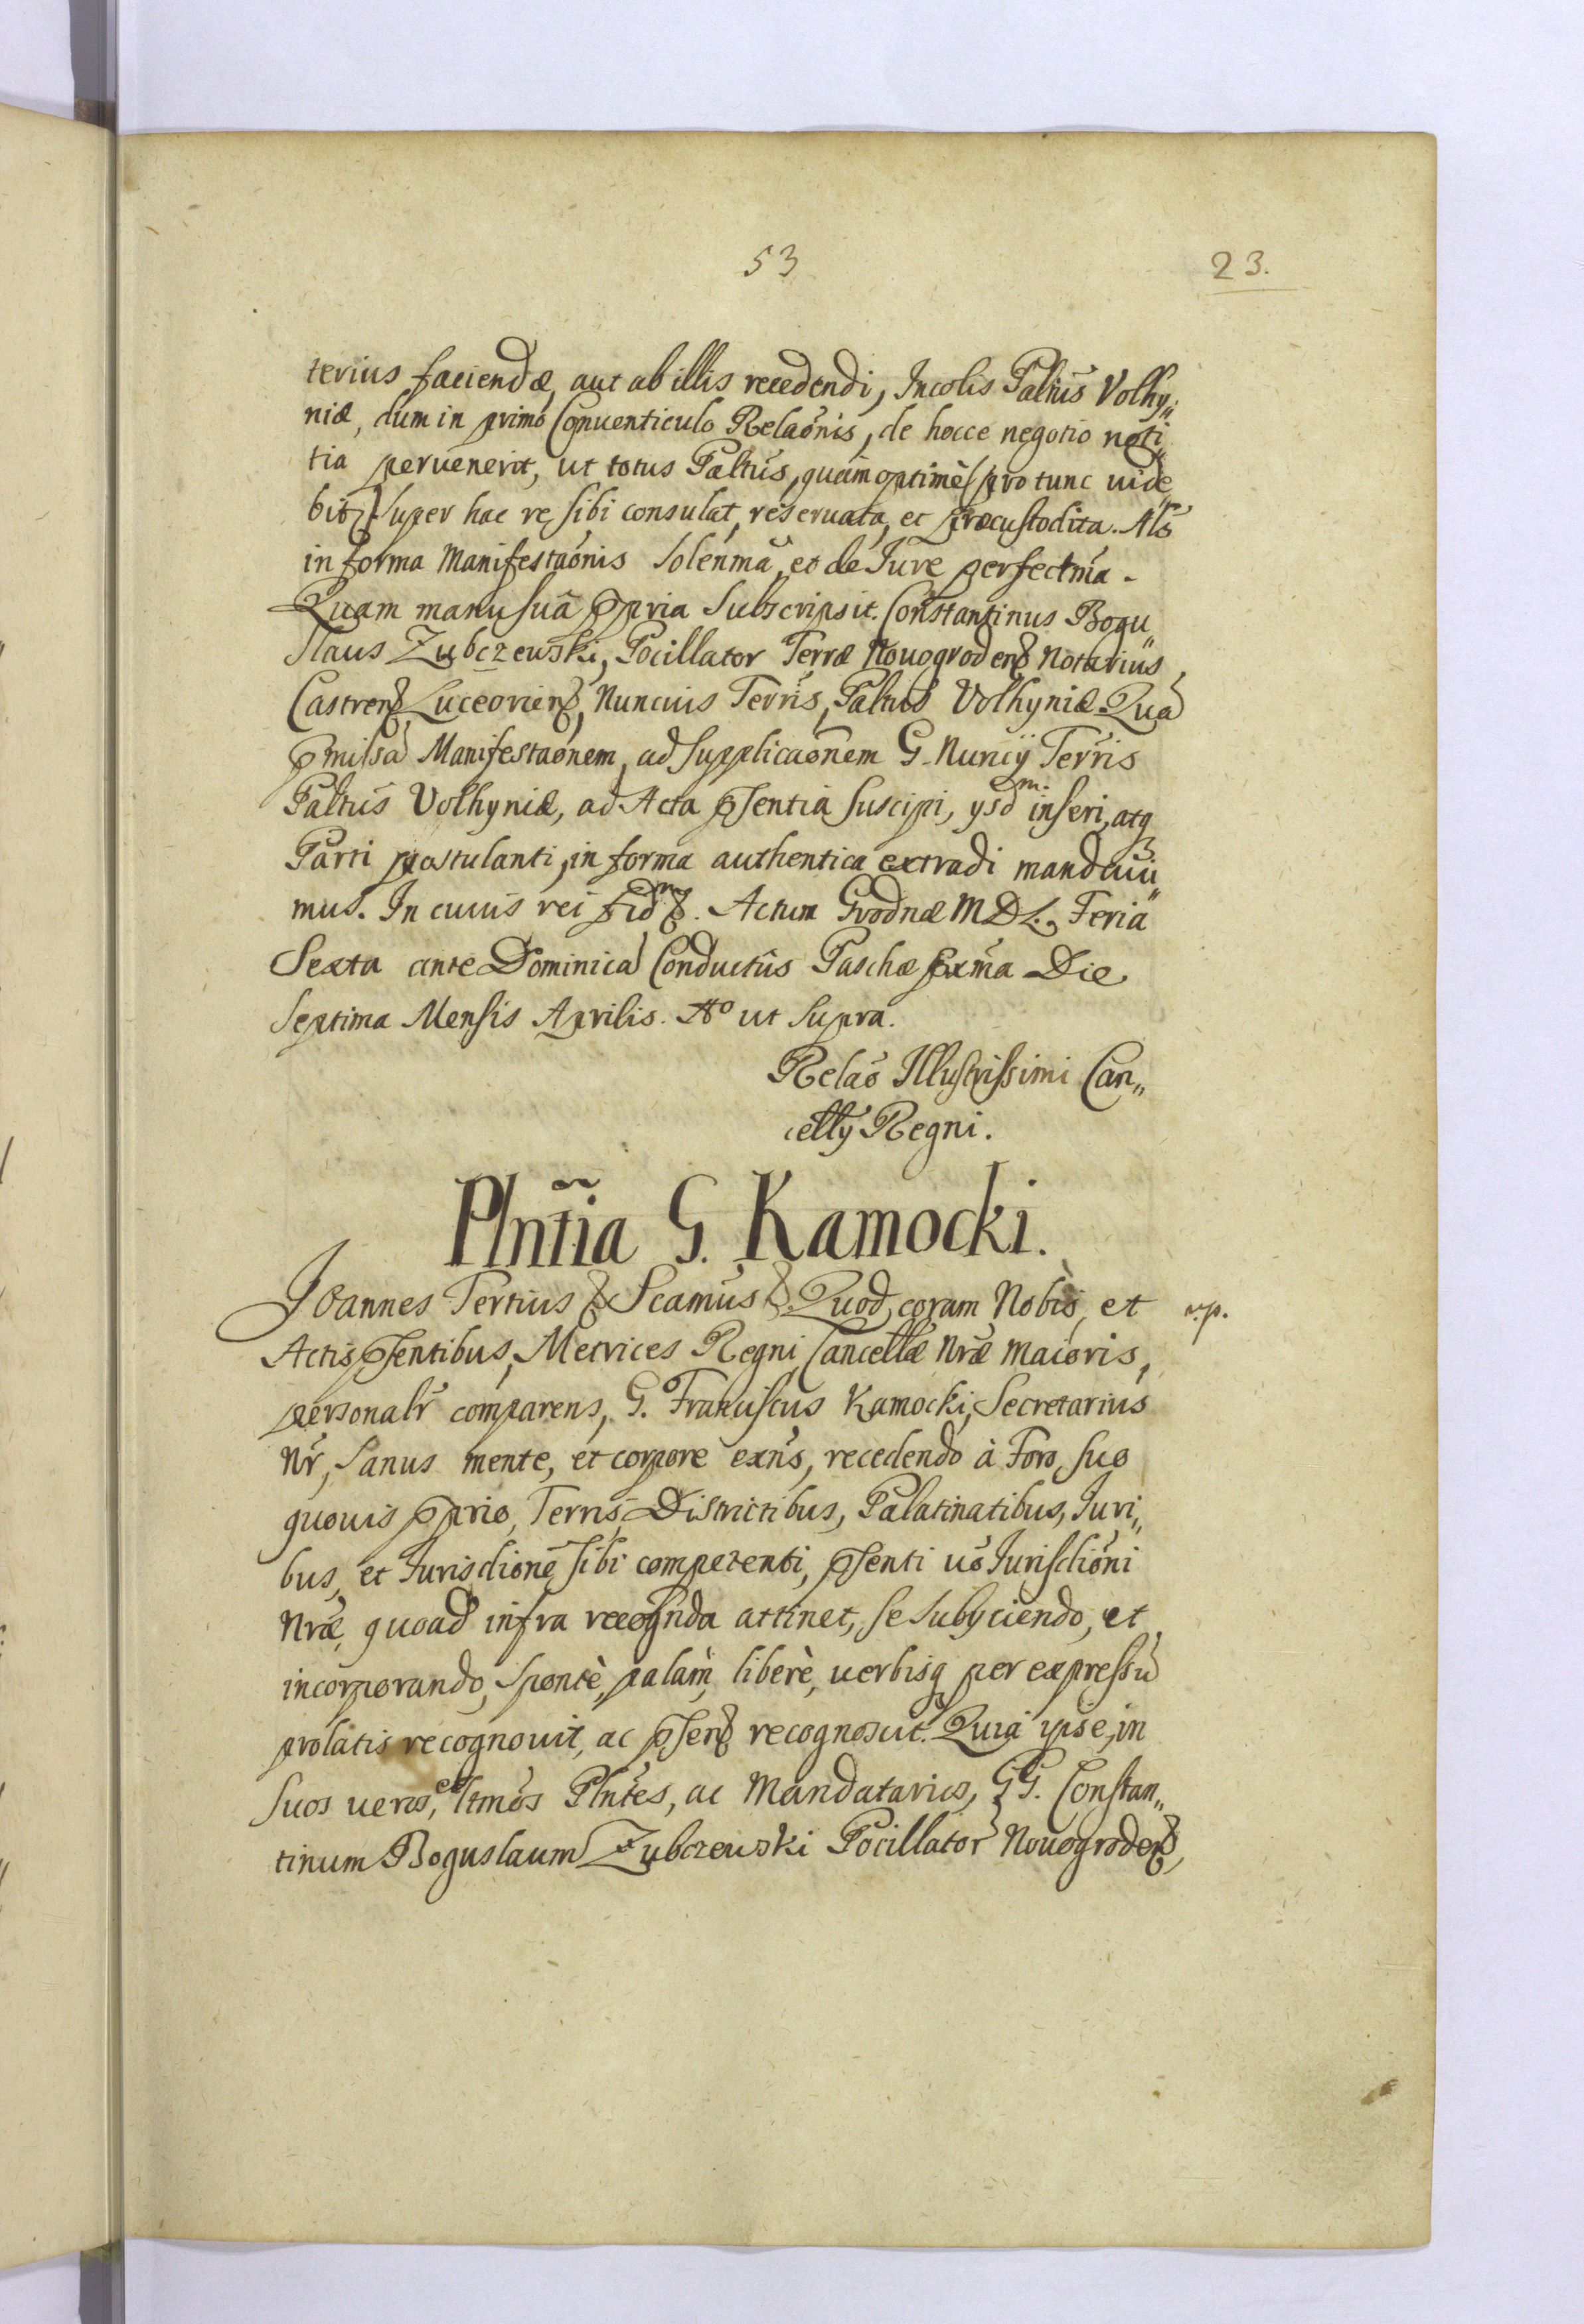 53
23.
terius faciendæ, aut ab illis recedendi, Incolis Paltus̃ Volhy„
niæ, dum in primo Conuenticulo Relaõnis, de hocce negotio noti„
tia peruenerit, ut totus Paltus̃, quam optimè pro tunc uide„
bit̃ super hac re sibi consulat, reseruata, et præcustodita. Als̃
in forma Manifestaõnis solenñia, et de Iure perfectm̃a.
Quam manu suâ ppria subscripsit. Constantinus Bogu„
slaus Zubczewski, Pocillator Terræ Nouogrodens Notarius
Castrens Luceoriens, Nuncius Terris̃, Paltus̃ Volhyniæ. Quã
pmissã Manifestaõnem, ad supplicaõnem G. Nuncij Terris̃
Paltus̃ Volhyniæ, ad Acta psentia suscipi, ysdm. inseri, atq
Parti postulanti, in forma authentica extradi mandaui„
mus. In cuius rei fidm &. Actum Grodnæ MDL. Feria
Sexta ante Dominicã Conductus̃ Paschæ pxm̃a Die
Septima Mensis Aprilis. Ao ut supra.
Relaõ Illustrissimi Can„
cellij Regni.
Plnt̃ia G. Kamocki.
Ioannes Tertius & Scamus̃ &. Quod coram Nobis, et
Actis psentibus, Metrices Regni Cancellæ Nræ Maioris,
personalr̃ comparens, G. Franciscus Kamocki, Secretarius
Nr̃, sanus mente, et corpore exñs, recedendo à Foro, suo
quouis pprio, Terris̃, Districtibus, Palatinatibus, Iuri„
bus, et Iurisdionẽ sibi competenti, psenti uõ Iurisdioñi
Nræ, quoad infra recogñda attinet, se subyciendo, et
incorporando, spontè, palàm, liberè, uerbisq per expressũ
prolatis recognouit, ac psens recognoscit. Quia ipse, in
suos ueros, et ltmõs Plnt̃es, ac Mandatarios, GG. Constan„
tinum Boguslaum Zubczewski Pocillatorẽ Nouogrodens,